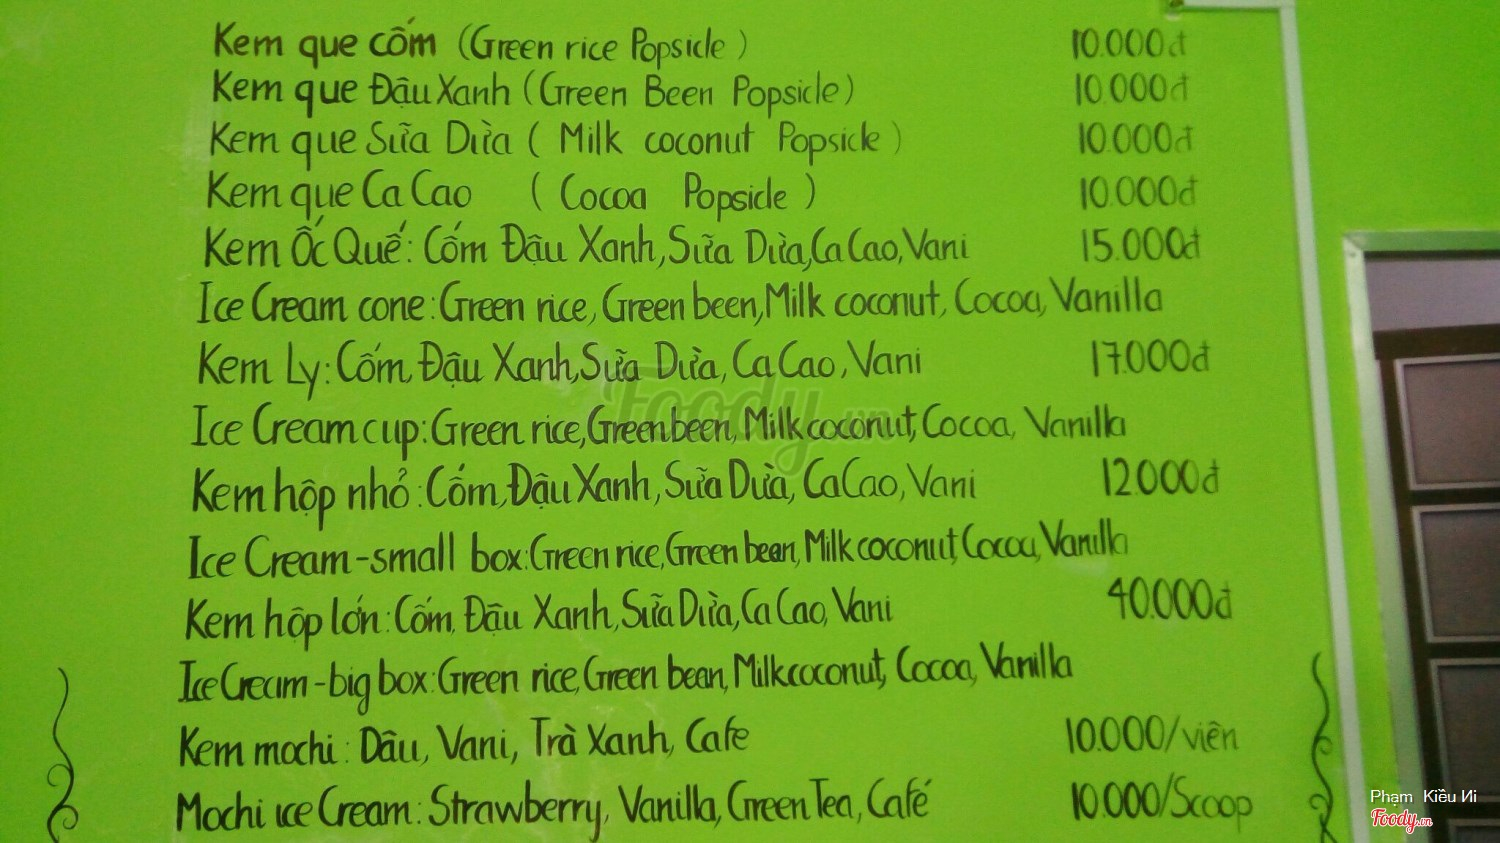 Kem que cốm (Green rice Popsicle) 10.000đ
Kem que Đậu Xanh (Green Been Popsicle) 10.000đ
Kem que Sữa Dừa ( Milk coconut Popsicle ) 10.000đ
Kem que Ca Cao ( Cocoa Popsicle ) 10.000đ
Kem Ốc Quế: Cốm Đậu Xanh, Sữa Dừa, Ca Cao, Vani 15.000đ
Ice Cream cone: Green rice, Green been, Milk coconut, Cocoa, Vanilla
Kem Ly: Cốm, Đậu Xanh, Sữa Dừa, Ca Cao, Vani 17.000đ
Ice Cream cup: Green rice, Green been, Milk coconut, Cocoa, Vanilla
Foody.vn
Kem hộp nhỏ: Cốm, Đậu Xanh, Sữa Dừa, Ca Cao, Vani 12.000đ
Ice Cream-small box: Green rice, Green bean, Milk coconut, Cocoa, Vanilla
Kem hộp lớn: Cốm, Đậu Xanh, Sữa Dừa, Ca Cao, Vani 40.000đ
Ice Cream-big box: Green rice, Green bean, Milk coconut, Cocoa, Vanilla
Kem mochi: Dâu, Vani, Trà Xanh, Cafe 10.000/viên
Mochi ice Cream: Strawberry, Vanilla, Green Tea, Café 10.000/Scoop
Phạm Kiều Иi
Foody.vn